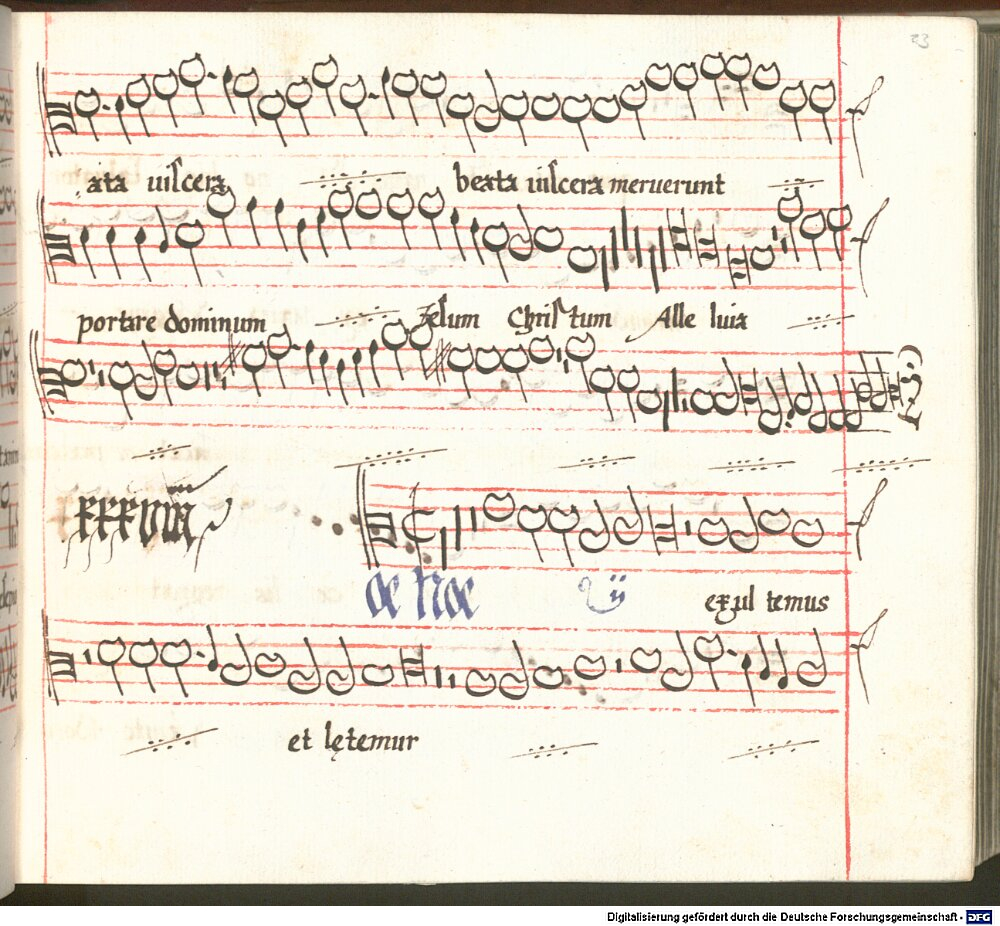 23
ata uiscera beata uiscera meruerunt
portare dominum Jesum Christum Alle luia
XXXVIII
oe Noe ij exul temus
et lętemur
Digitalisierung gefördert durch die Deutsche Forschungsgemeinschaft - DFG